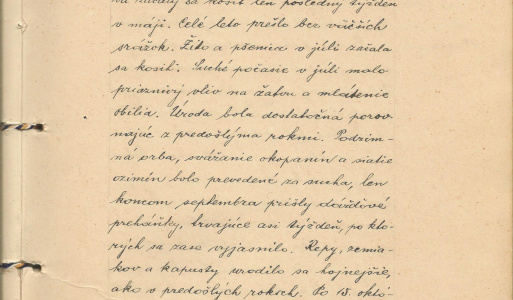 sa kosiť len posledný týždeň
v máji. Celé leto prešlo bez väčších
srážok. Žito a pšenica v júli začala
sa kosiť. Suché počasie v júli malo
priaznivý vliv na žatvu a mlátenie
obilia. Úroda bola dostatočná porov-
najúc z predošlýma rokmi. Podzim-
ná orba, svážanie okopanín a siatie
ozimín bolo prevedené za sucha, len
koncom septembra prišly dažďivé
preháňky, trvajúce asi týždeň, po kto-
rých sa zase vyjasnilo. Repy, zemia-
kov a kapusty urodilo sa hojnejšie,
ako v predošlých rokoch. Po 15. októ-